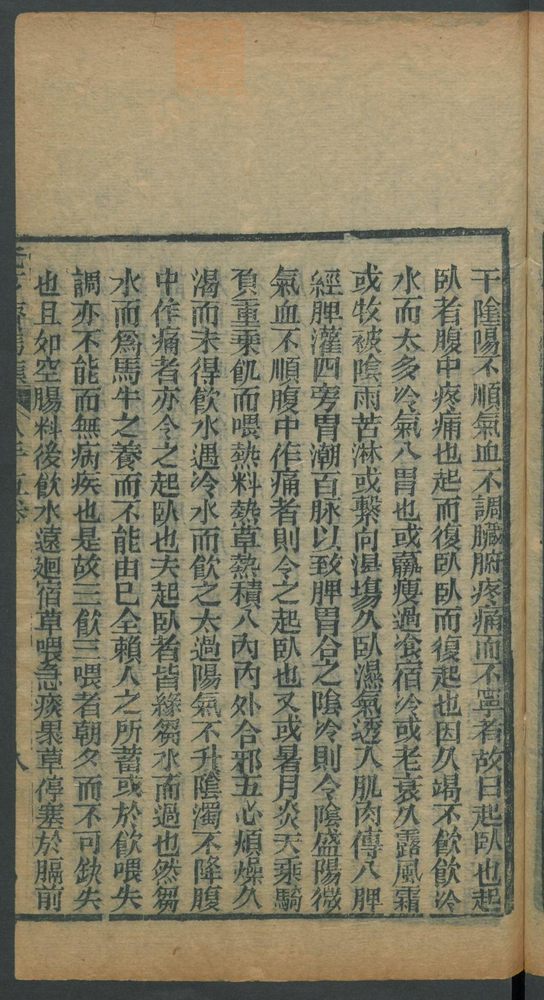 干陰陽不順氣血不調臟腑疼痛而不寧者故曰起臥也起
臥者腹中疼痛也起而復臥臥而復起也因久竭不飲飲冷
水而太多冷氣入胃也或羸瘦過飡宿冷或老衰久露風霜
或牧被陰雨苦淋或繫向濕塲久臥濕氣透入肌肉傳入脾
經脾灌四旁胃潮百脉以致脾胃合之陰冷則令陰盛陽微
氣血不順腹中作痛者則令之起臥也又或暑月炎天乘騎
負重乘飢而喂熱料熱草熱積入內內外合邪五心煩燥久
渴而未得飲水遇冷水而飲之太過陽氣不升陰濁不降腹
中作痛者亦令之起臥也夫起臥者皆絲芻水而過也然芻
水而為馬牛之養而不能由巳全賴人之所蓄或於飲喂失
調亦不能而無病疾也是故三飲三喂者朝夕而不可缺失
也且如空腸料後飲水遠廻宿草喂急痰果草停塞於膈前